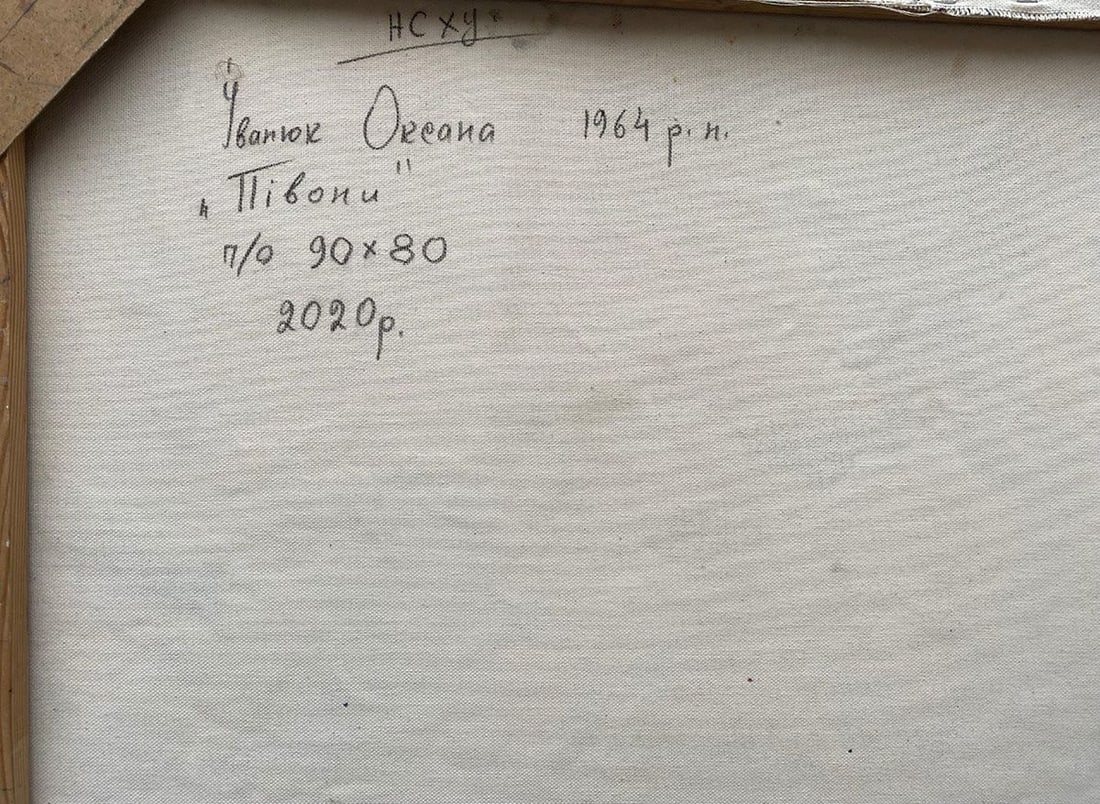 НСХУ
Іванюк Оксана 1964 р.н.
„Півони"
п/о 90×80
2020р.